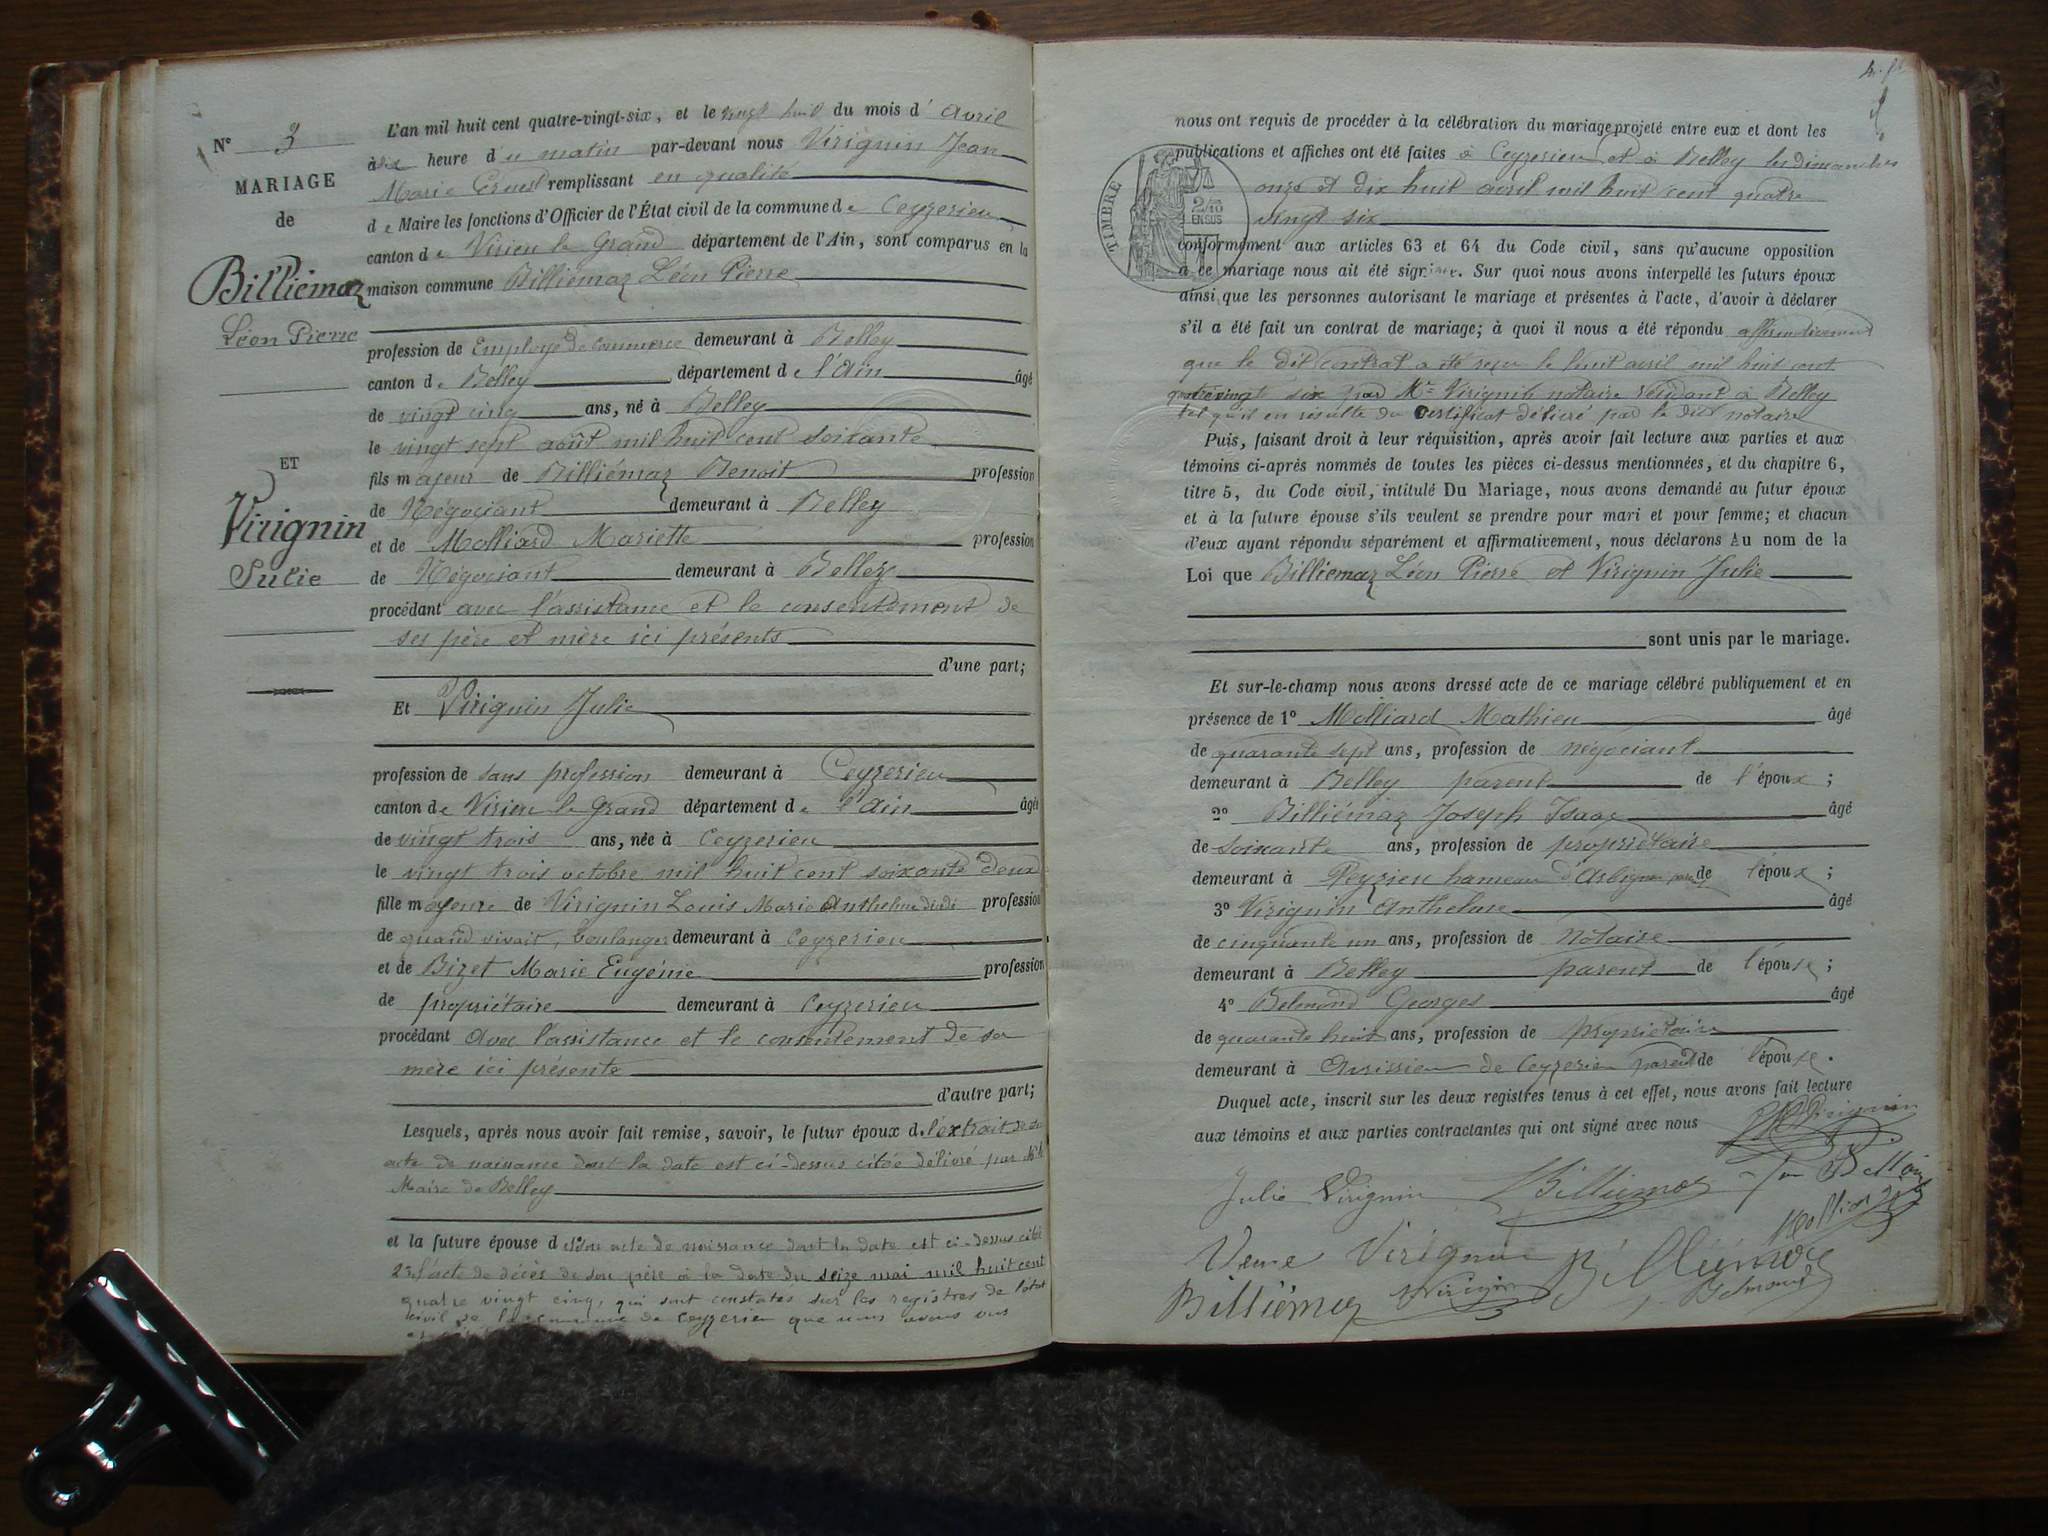 Nº 3
MARIAGE
de
Billiémaz
Léon Pierre
ET
Virignin
Julie
L'an mil huit cent quatre-vingt-six, et le vingt huit du mois d'avril
à dix heure du matin par-devant nous Virignin Jean
Marie Ernest remplissant en qualité
de Maire les fonctions d'Officier de l'État civil de la commune de Ceyzerieu
canton de Virieu le Grand département de l'Ain, sont comparus en la
maison commune Billiémaz Léon Pierre
profession de Employé de commerce demeurant à Belley
canton de Belley département de l'Ain âgé
de vingt cinq ans, né à Belley
le vingt sept août mil huit cent soixante
fils majeur de Billiémaz Benoit profession
de Négociant demeurant à Belley
et de Molliard Mariette profession
de Négociant demeurant à Belley
procédant avec l'assistance et le consentement de
ses père et mère ici présents
d'une part;
Et Virignin Julie
profession de sans profession demeurant à Ceyzerieu
canton de Virieu le Grand département de l'Ain âgée
de vingt trois ans, née à Ceyzerieu
le vingt trois octobre mil huit cent soixante deux
fille majeure de Virignin Louis Marie Anthelme décédé profession
de quand vivait, boulanger demeurant à Ceyzerieu
et de Bizet Marie Eugénie profession
de propriétaire demeurant à Ceyzerieu
procédant avec l'assistance et le consentement de sa
mère ici présente
d'autre part;
Lesquels, après nous avoir fait remise, savoir, le futur époux de l'extrait de son
acte de naissance dont la date est ci-dessus citée délivré par Mr le
Maire de Belley
et la future épouse d son acte de naissance dont la date est ci-dessus citée
2° l'acte de décès de son père à la date du seize mai mil huit cent
quatre vingt cinq, qui sont constatés sur les registres de l'état
civil de la commune de Ceyzerieu que nous avons vus
nous ont requis de procéder à la célébration du mariage projeté entre eux et dont les
publications et affiches ont été faites à Ceyzerieu et à Belley les dimanches
onze et dix huit avril mil huit cent quatre
vingt six
TIMBRE
2/10
EN SUS
conformément aux articles 63 et 64 du Code civil, sans qu'aucune opposition
à ce mariage nous ait été signifiée. Sur quoi nous avons interpellé les futurs époux
ainsi que les personnes autorisant le mariage et présentes à l'acte, d'avoir à déclarer
s'il a été fait un contrat de mariage; à quoi il nous a été répondu affirmativement
que le dit contrat a été reçu le huit avril mil huit cent
quatre vingt six par Mre Virignin notaire résidant à Belley
tel qu'il en résulte du Certificat délivré par le dit notaire
Puis, faisant droit à leur réquisition, après avoir fait lecture aux parties et aux
témoins ci-après nommés de toutes les pièces ci-dessus mentionnées, et du chapitre 6,
titre 5, du Code civil, intitulé Du Mariage, nous avons demandé au futur époux
et à la future épouse s'ils veulent se prendre pour mari et pour femme; et chacun
d'eux ayant répondu séparément et affirmativement, nous déclarons Au nom de la
Loi que Billiemaz Léon Pierre et Virignin Julie
sont unis par le mariage.
Et sur-le-champ nous avons dressé acte de ce mariage célébré publiquement et en
présence de 1º Molliard Mathieu âgé
de quarante sept ans, profession de négociant
demeurant à Belley parent de l'époux;
2º Billiémaz Joseph Isaac âgé
de soixante ans, profession de propriétaire
demeurant à Peyzieu hameau d'Arbignieu parent de l'époux;
3º Virignin Anthelme âgé
de cinquante un ans, profession de Notaire
demeurant à Belley parent de l'épouse;
4º Belmond Georges âgé
de quarante huit ans, profession de propriétaire
demeurant à Avrissieu de Ceyzerieu parent de l'épouse.
Duquel acte, inscrit sur les deux registres tenus à cet effet, nous avons fait lecture
aux témoins et aux parties contractantes qui ont signé avec nous
Virignin
Julie Virignin Billiemaz
Molliard
Veuve Virignin Billiémaz
Billiémaz Virignin Belmond